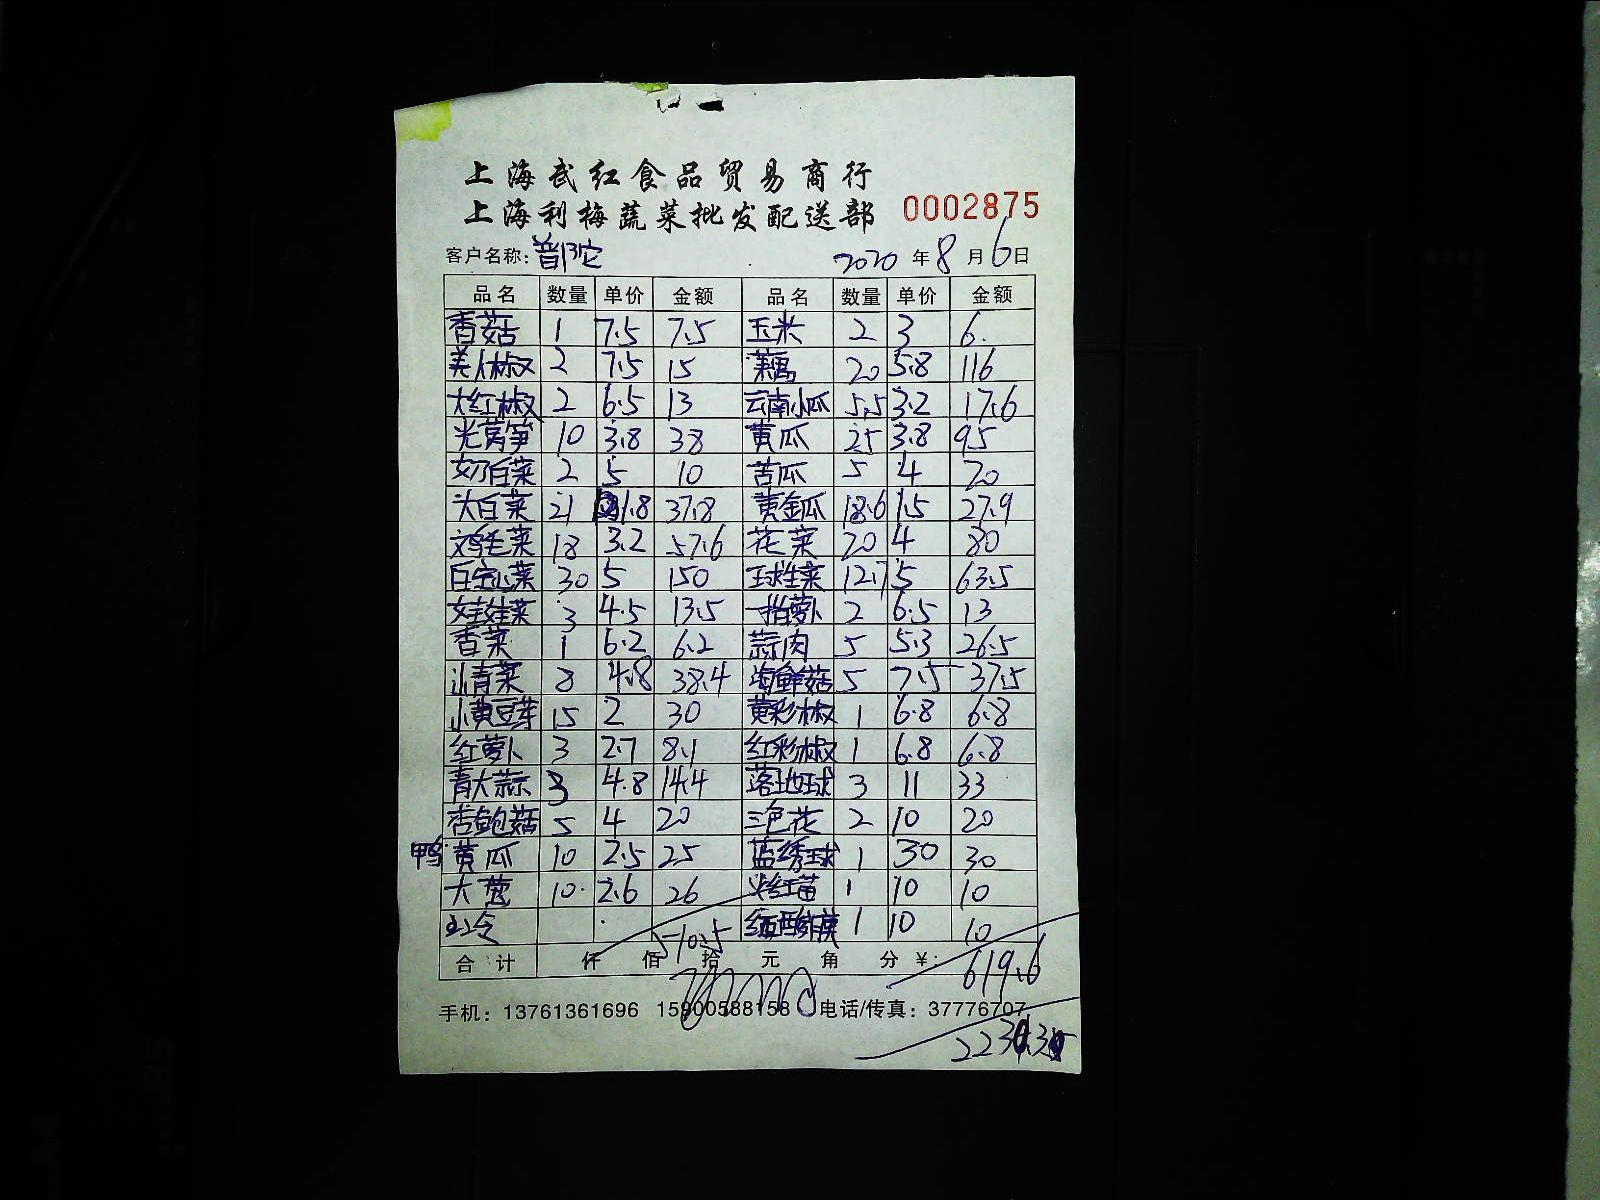 上海武红食品贸易商行
上海利梅蔬菜批发配送部 0002875
客户名称: 普陀 2020 年 8 月 6 日
品名 数量 单价 金额 品名 数量 单价 金额
香菇 1 7.5 7.5 玉米 2 3 6.
美人椒 2 7.5 15 藕 20 5.8 116
大红椒 2 6.5 13 云南小瓜 5.5 3.2 17.6
光莴笋 10 3.8 38 黄瓜 25 3.8 95
奶白菜 2 5 10 苦瓜 5 4 20
大白菜 21 1.8 37.8 黄金瓜 18.6 1.5 27.9
鸡毛菜 18 3.2 57.6 花菜 20 4 80
白空心菜 30 5 150 球生菜 12.7 5 63.5
娃娃菜 3 4.5 13.5 一指萝卜 2 6.5 13
香菜 1 6.2 6.2 蒜肉 5 5.3 26.5
小青菜 8 4.8 38.4 海鲜菇 5 7.5 37.5
小黄豆芽 15 2 30 黄彩椒 1 6.8 6.8
红萝卜 3 2.7 8.1 红彩椒 1 6.8 6.8
青大蒜 3 4.8 14.4 落地球 3 11 33
杏鲍菇 5 4 20 三色花 2 10 20
鸭黄瓜 10 2.5 25 蓝绣球 1 30 30
大葱 10 2.6 26 苗 1 10 10
1 10 10
510.5
合计 仟 佰 拾 元 角 分 ¥: 619.6
手机: 13761361696 15900588158 电话/传真: 37776707